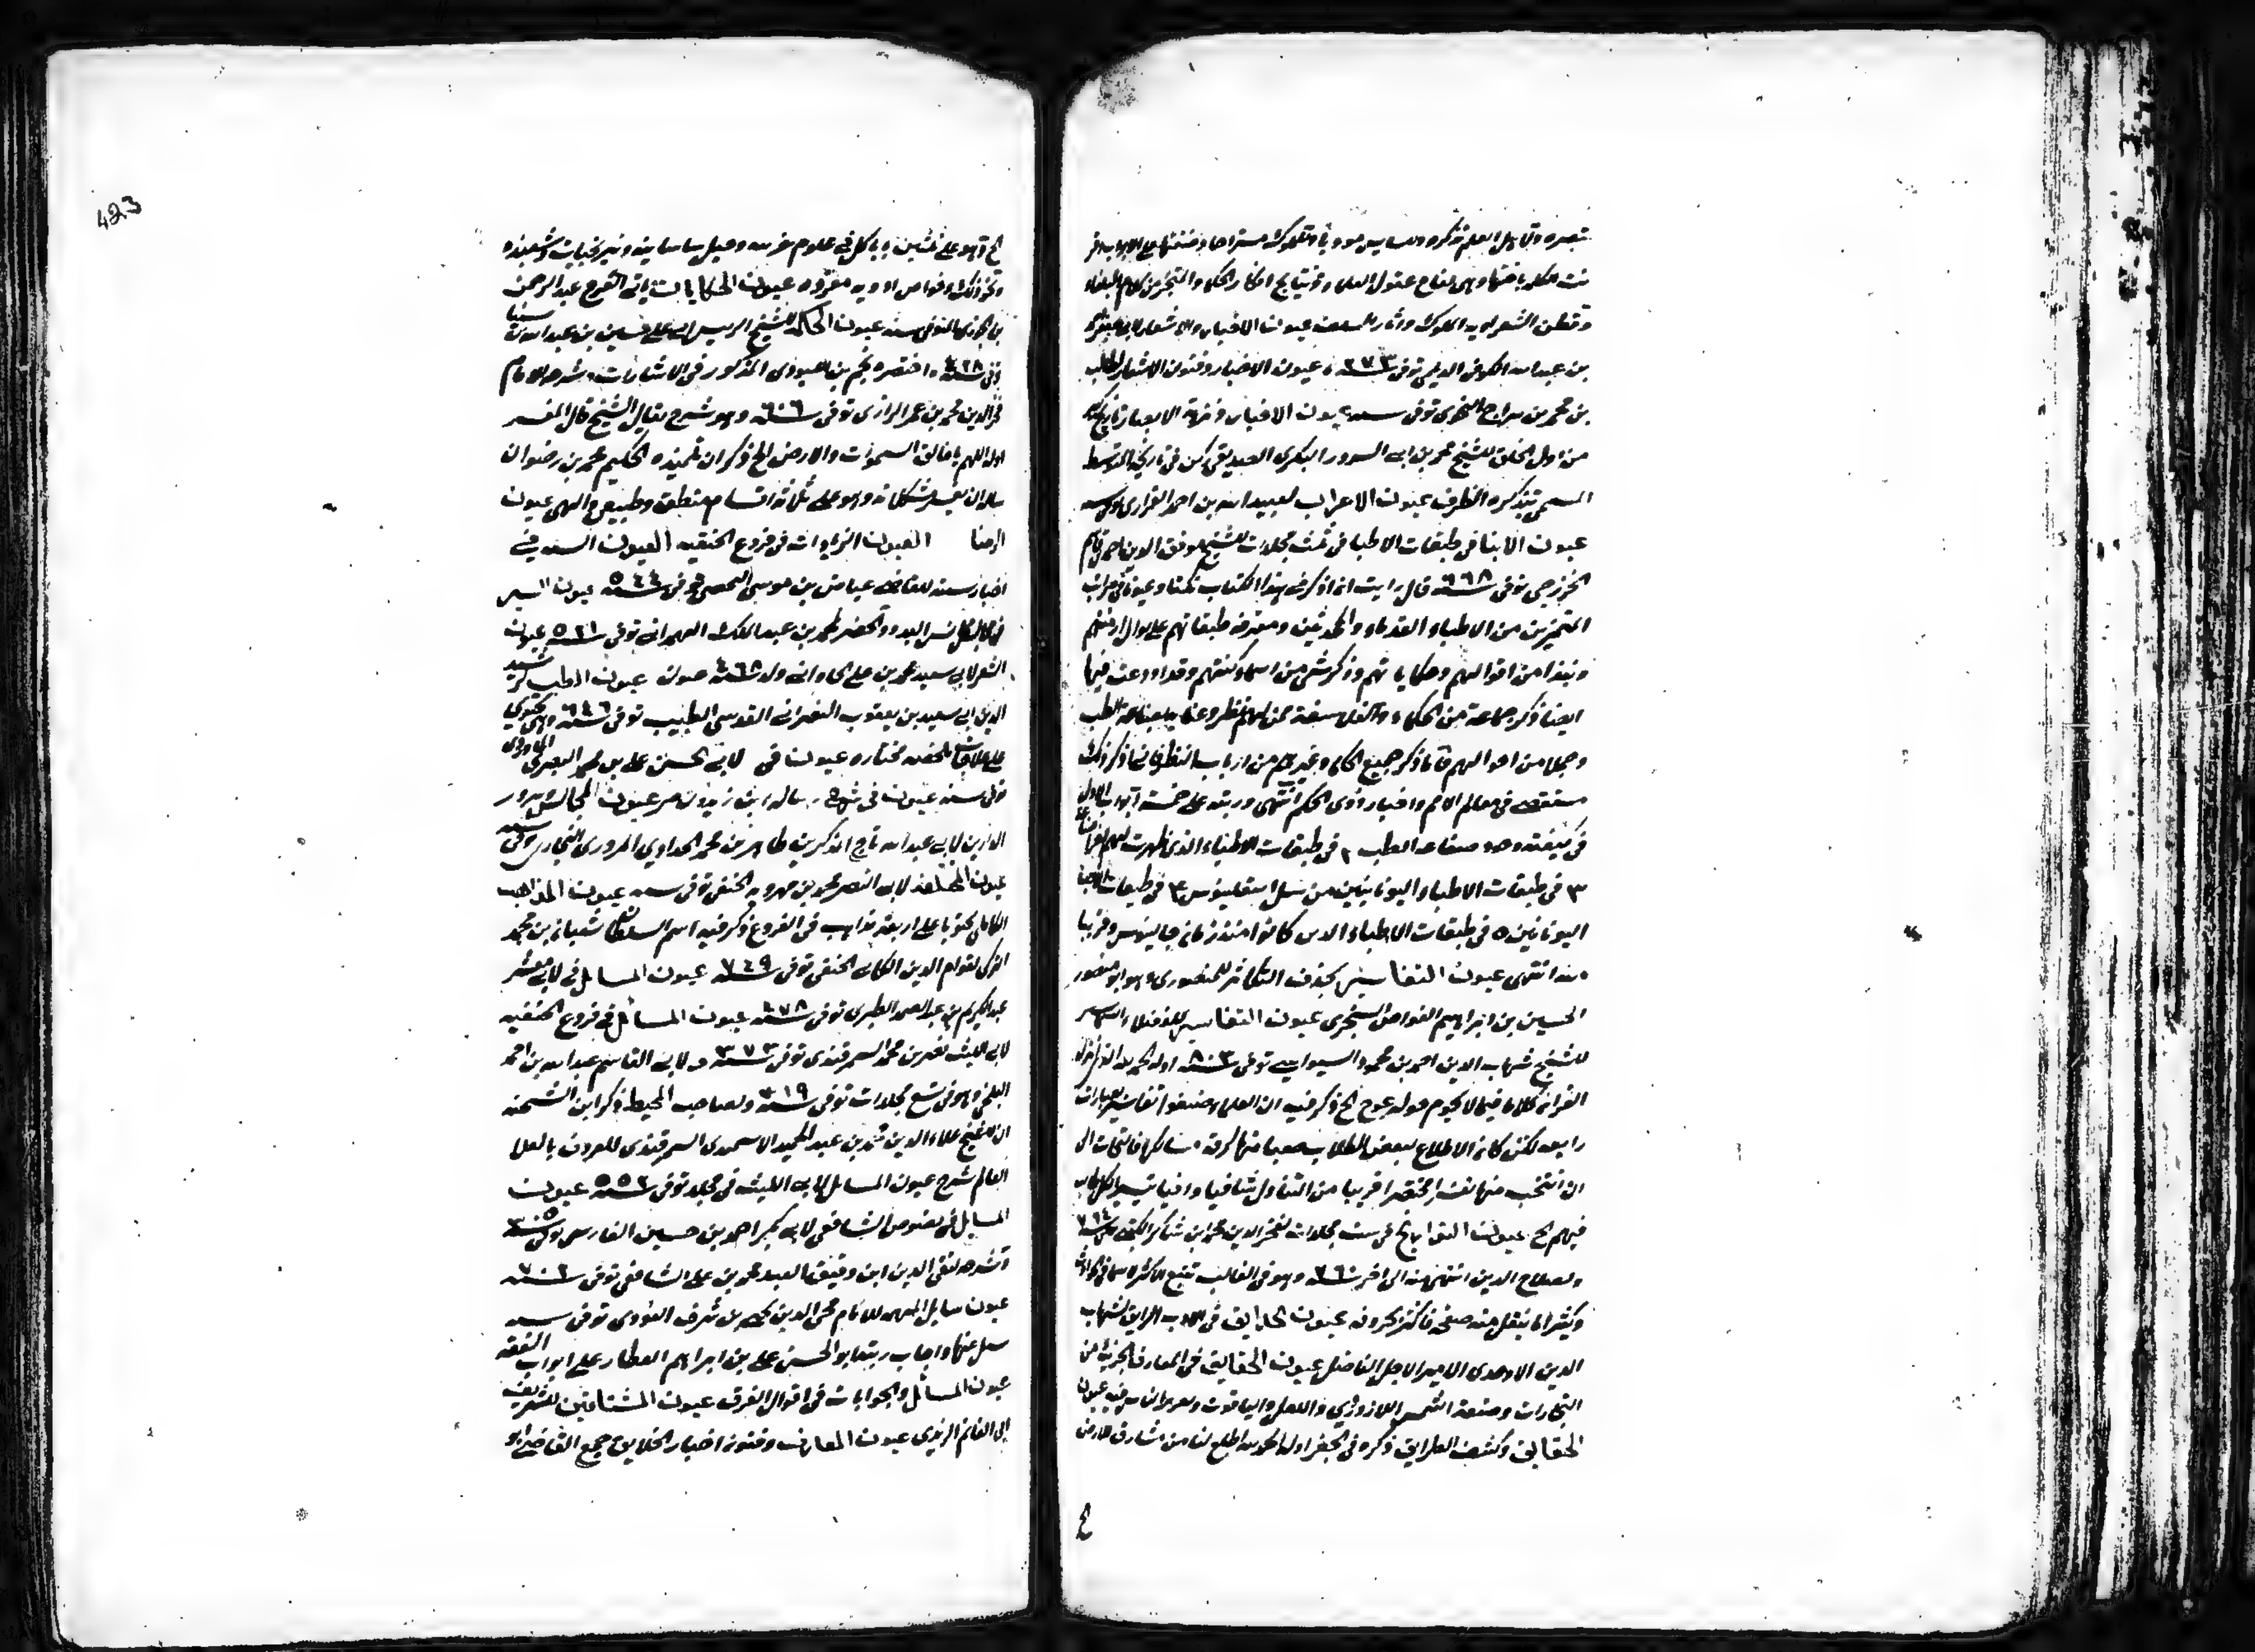 تبصره ولاهل العلم تذكره
من الشعر اوبه الملوك وآثار عيون الاخبار والاشعار لابى جعفر
بن عبد الله الكوفى الديلمى توفى سنة ٢٧٣ وعيون الاخبار وفنون الاشعار
بن محمد بن سراج النحوى توفى سنة عيون الاخبار ونزهة الابصار تاريخ كبير
من اول الخلق للشيخ محمد بن ابى السرور البكرى الصديقى
المسمى بتذكرة الظرفا عيون الاعراب لعبيد الله بن احمد الفزارى توفى سنة
عيون الانبا فى طبقات الاطبا فى ثلث مجلدات للشيخ موفق الدين احمد بن قاسم
الخزرجى توفى سنة ٦٦٨ قال رايت ان اذكر فى هذا الكتاب نكتا وعيونا فى مراتب
المتميزين من الاطباء القدماء والمحدثين ومعرفة طبقاتهم على توالى ازمنتهم
ونبذا من اقوالهم وحكاياتهم وذكر شئ من اسماء كتبهم وقد اودعت فيها
ايضا ذكر جماعة من الحكماء والفلاسفة ممن لهم نظر وعناية بصناعة الطب
وجملا من احوالهم فاما ذكر جميع الحكماء وغيرهم من ارباب النظر فانى اذكر ذلك
مستقصى فى معالم الامم واخبار ذوى الحكم انتهى ورتبه على خمسة ابواب الاول
فى كيفية وجود صناعة الطب ٢ فى طبقات الاطباء الذين ظهرت لهم
٣ فى طبقات الاطباء اليونانيين من نسل اسقليبوس ٤ فى طبقات الاطباء
اليونانيين ٥ فى طبقات الاطباء الذين كانوا منذ زمان جالينوس وقريبا
منه انتهى عيون التفاسير بحذف التكاثر للمنصورى وهو ابو منصور
الحسين بن ابراهيم الغواص السنجرى عيون التفاسير للفضلاء السماسير
للشيخ شهاب الدين احمد بن محمود السيواسى توفى سنة ٨٠٣ اوله الحمد لله الذى انزل
القران كلاما قيما لا يحوم حوله عوج الخ ذكر فيه ان العلماء صنفوا تفاسير بعبارات
رايعه لكن كان الاطلاع لبعض الطلاب صعبا منها لدقة مسالكها فالتجأت الى
ان انتخب منها تفسيرا مختصرا قريبا من التناول شافيا وافيا تيسيرا لكل طالب
فيهم الخ عيون التواريخ فى ست مجلدات لفخر الدين محمد بن شاكر الكتبى توفى سنة ٧٦٤
ولصلاح الدين انتهى فيه الى اخر سنة ٧٦٠ وهو فى الغالب يتبع ابن كثير لا سيما فى الحوادث
وكثيرا ما ينقل منه صفحة فاكثر بحروفه عيون الحدايق فى الادب الرايق لشهاب
الدين الاوحدى الامير الاجل الفاضل عيون الحقايق فى المعارف الجزئية من
التجارات وصنعة الشمس اللازوردى واللعل والياقوت عيون
الحقايق وكشف الطرايق ذكره فى الجفر اوله الحمد لله اطلع لنا من مشارق
ع
423
الخ وهو على ثلثين بابا كل فى علوم غريبة وحيل ساسانيه ونيرنجيات وشعبذه
ونحو ذلك وخواص ادويه مفرده عيون الحكايات لابى الفرج عبد الرحمن
بن الجوزى المتوفى سنة عيون الحكمة للشيخ الرييس ابى على حسين بن عبد الله بن سينا
توفى سنة ٤٢٨ واختصره نجم بن اللبودى المذكور فى الاشارات وشرحه الامام
فخر الدين محمد بن عمر الرازى توفى سنة ٦٠٦ وهو شرح بقال الشيخ قال المفسر
اوله اللهم يا خالق السموات والارض الخ ذكر ان تلميذه الحكيم محمد بن رضوان
ساله ان يفسر مشكلاته وهو على ثلاثة اقسام منطقى وطبيعى والهى عيون
الرضا العيون الزايرات فى فروع الحنفيه العيون السته فى
اخبار سبته للقاضى عياض بن موسى اليحصبى توفى سنة ٥٤٤ عيون السير
فى محاسن البدو والحضر لمحمد بن عبد الملك الهمدانى توفى سنة ٥٢١ عيون
الشعر لابى سعيد محمد بن على الجاوانى ولد سنة ٤٦٨ عيون الطب لرشيد
الدين ابى سعيد بن يعقوب النصرانى القدسى الطبيب توفى سنة ٦٤٦ وهى تحتوى
على علاجات ملخصة مختارة عيون فى لابى الحسن على بن محمد البصرى الماوردى
توفى سنة عيون فى شرح رساله ابن زيدون مر عيون المجالس وسرور
الدارين لابى عبد الله تاج المذكرين طاهر بن محمد الحدادى المروزى البخارى توفى سنة
عيون المختلف لابى النصر محمد بن مهرويه الحنفى توفى سنة عيون المذاهب
الكاملى محتويا على اربعة مذاهب فى الفروع ذكر فيه اسم السلطان شعبان بن محمد
التركى لقوام الدين الكاكى الحنفى توفى سنة ٧٤٩ عيون المسائل لابى معشر
عبد الكريم بن عبد الصمد الطبرى توفى سنة ٤٧٨ عيون المسائل فى فروع الحنفيه
لابى الليث نصر بن محمد السمرقندى توفى سنة ٣٧٣ ولابى القاسم عبد الله بن احمد
البلخى وهو فى تسع مجلدات توفى سنة ٣١٩ ولصاحب المحيط ذكر ابن الشحنه
ان للشيخ علاء الدين محمد بن عبد الحميد الاسمندى السمرقندى المعروف بالعلا
العالم شرح عيون المسائل لابى الليث فى مجلد توفى سنة ٥٥٢ عيون
المسائل فى نصوص الشافعى لابى بكر احمد بن حسين الفارسى توفى سنة ٣٠٥
وشرحه لتقى الدين ابن دقيق العيد محمد بن على الشافعى توفى سنة ٧٠٢
عيون مسايل المهمه للامام محى الدين يحيى بن شرف النووى توفى سنة
سئل عنها واجاب رتبها ابو الحسن على بن ابراهيم العطار على ابواب الفقه
عيون المسائل والجوابات فى اقوال الفرق عيون المشتاقين للشريف
ابى الغانم الزيدى عيون المعارف وفنون اخبار الخلايق جمع القاضى ابو